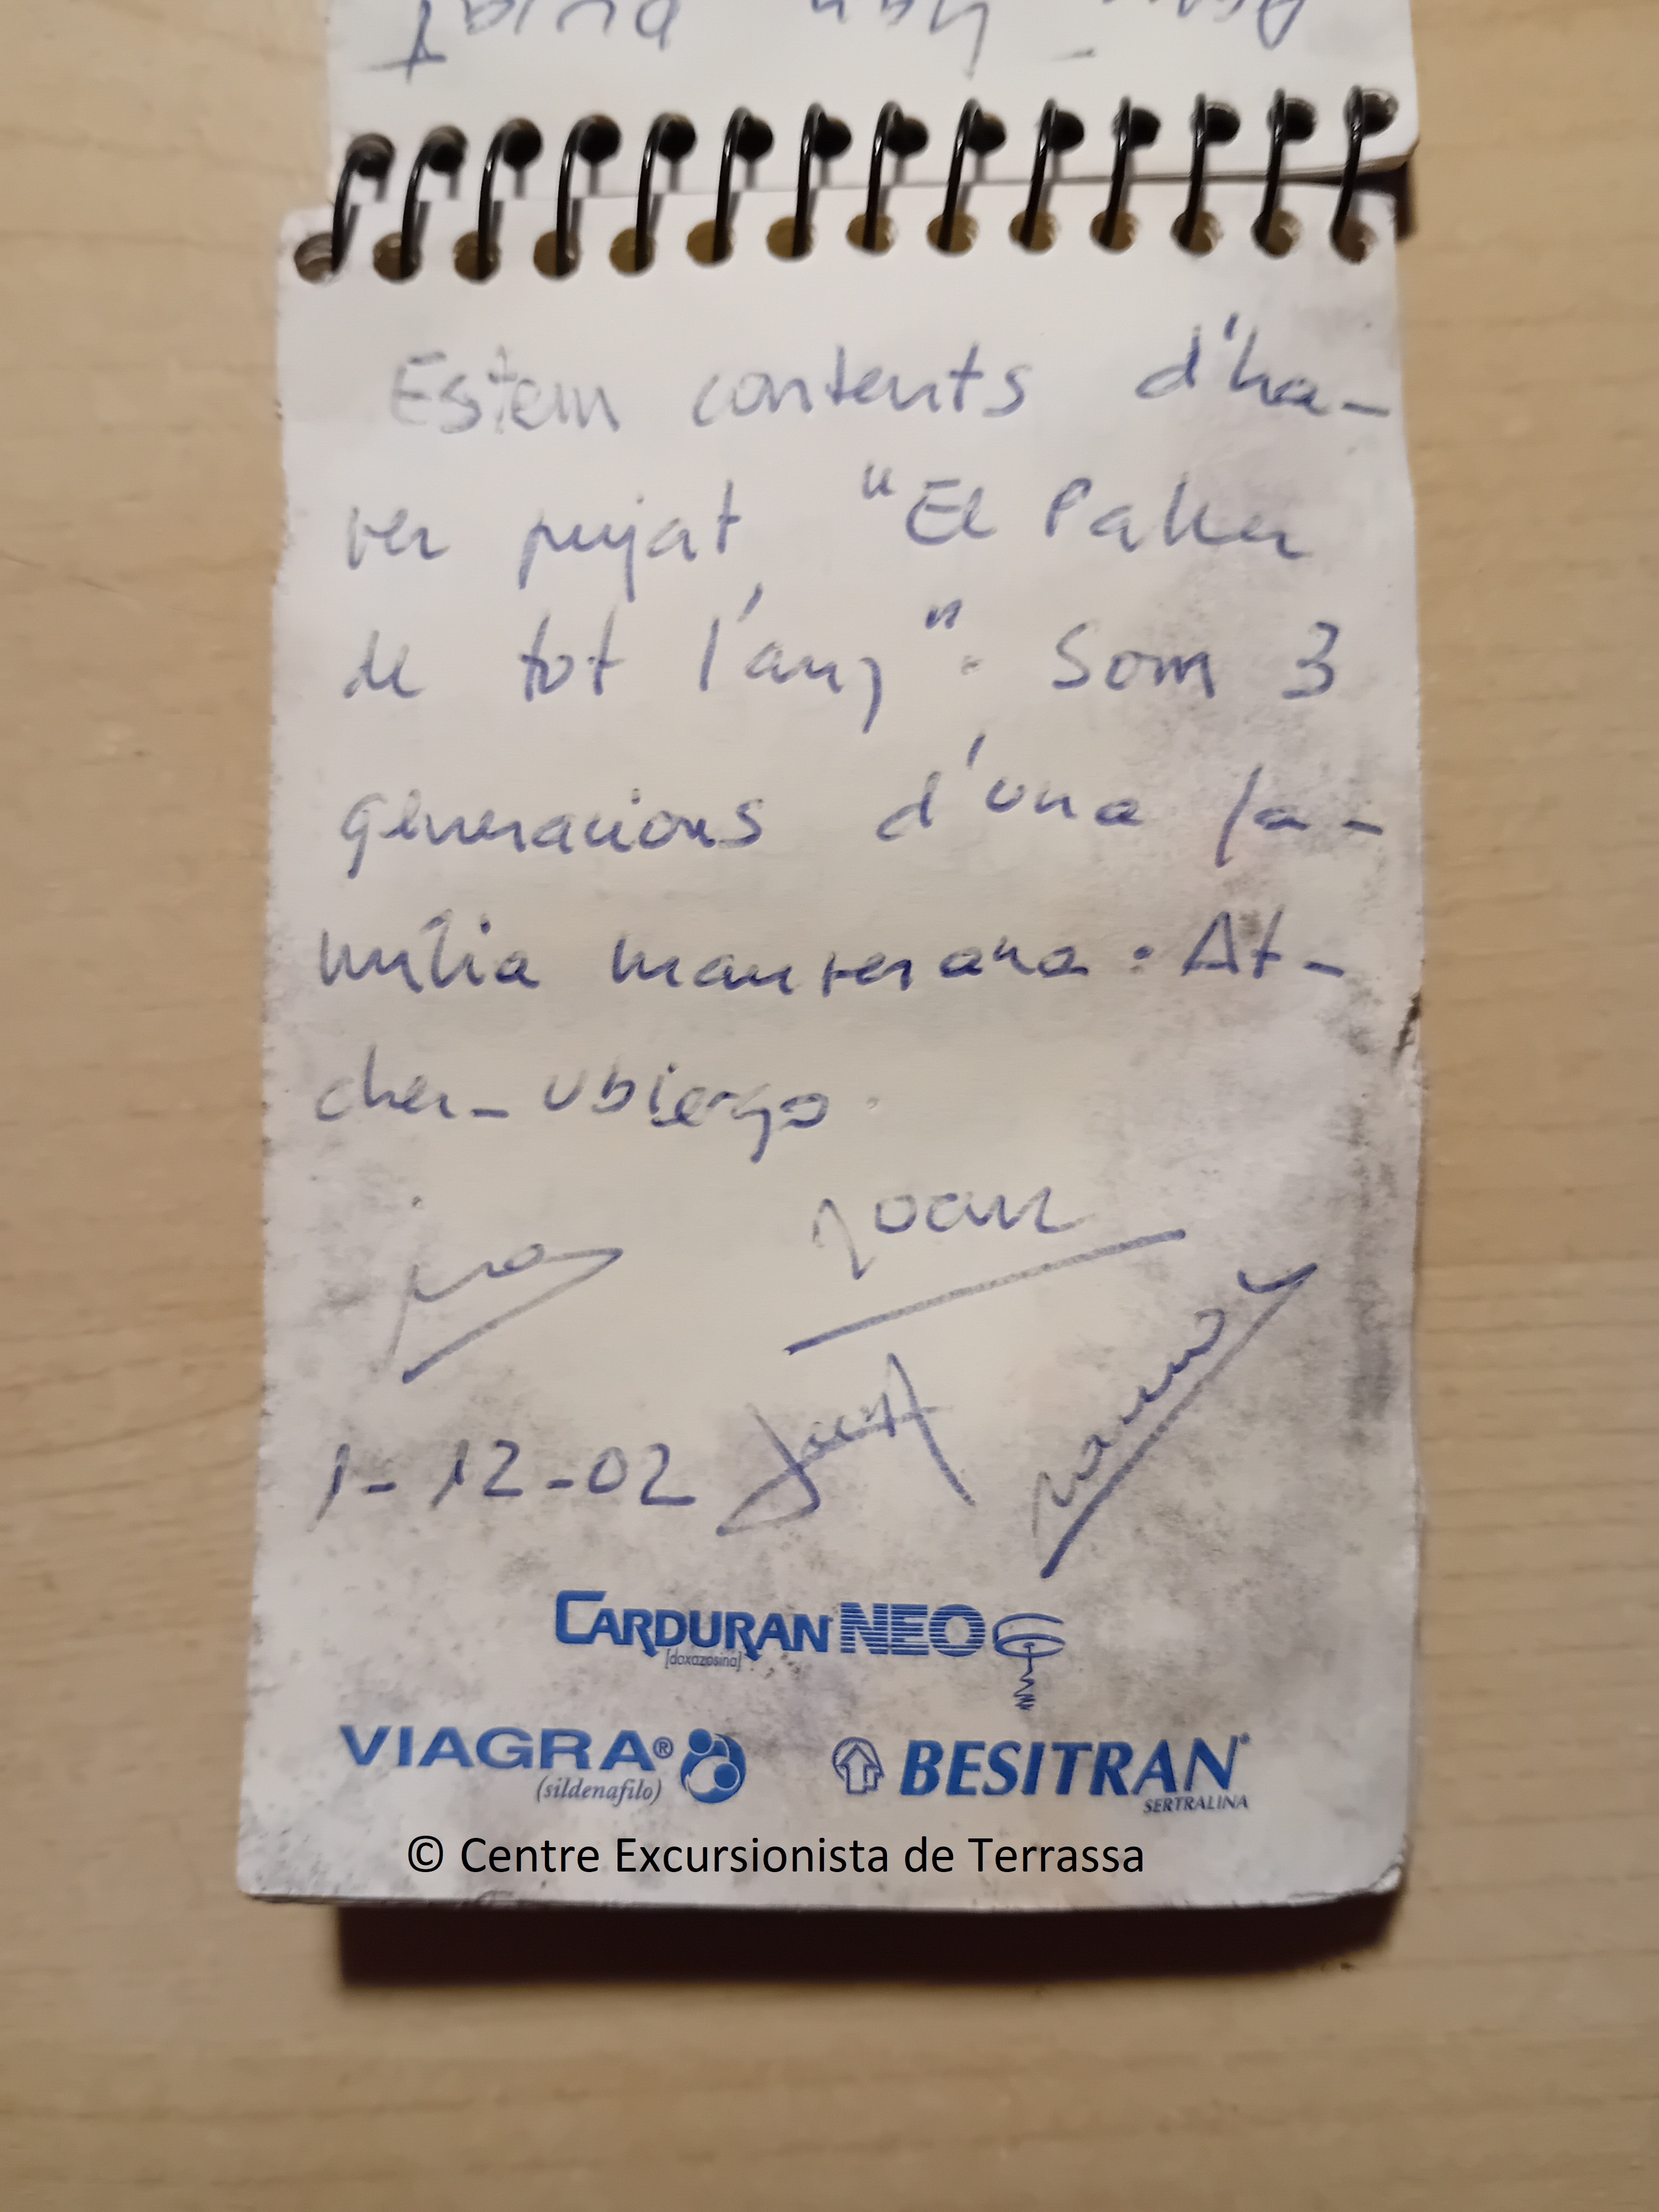 Estem contents d'ha-
ver pujat "El Paller
de tot l'any". Som 3
generacions d'una fa-
mília manresana. At-
cher-Ubiergo.
Joan
1-12-02
CARDURAN NEO
[doxazosina]
VIAGRA®
(sildenafilo)
BESITRAN®
SERTRALINA
© Centre Excursionista de Terrassa